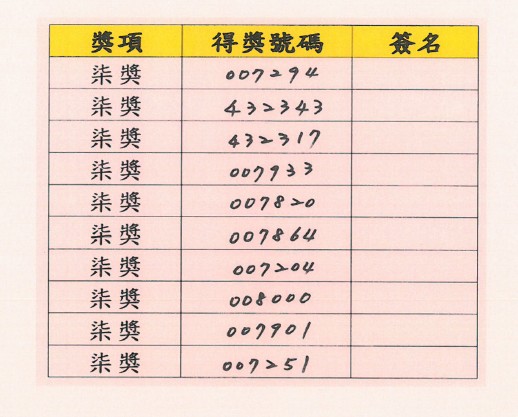 獎項 得獎號碼 簽名
柒獎 007294
柒獎 432343
柒獎 432317
柒獎 007933
柒獎 007820
柒獎 007864
柒獎 007204
柒獎 008000
柒獎 007901
柒獎 007251